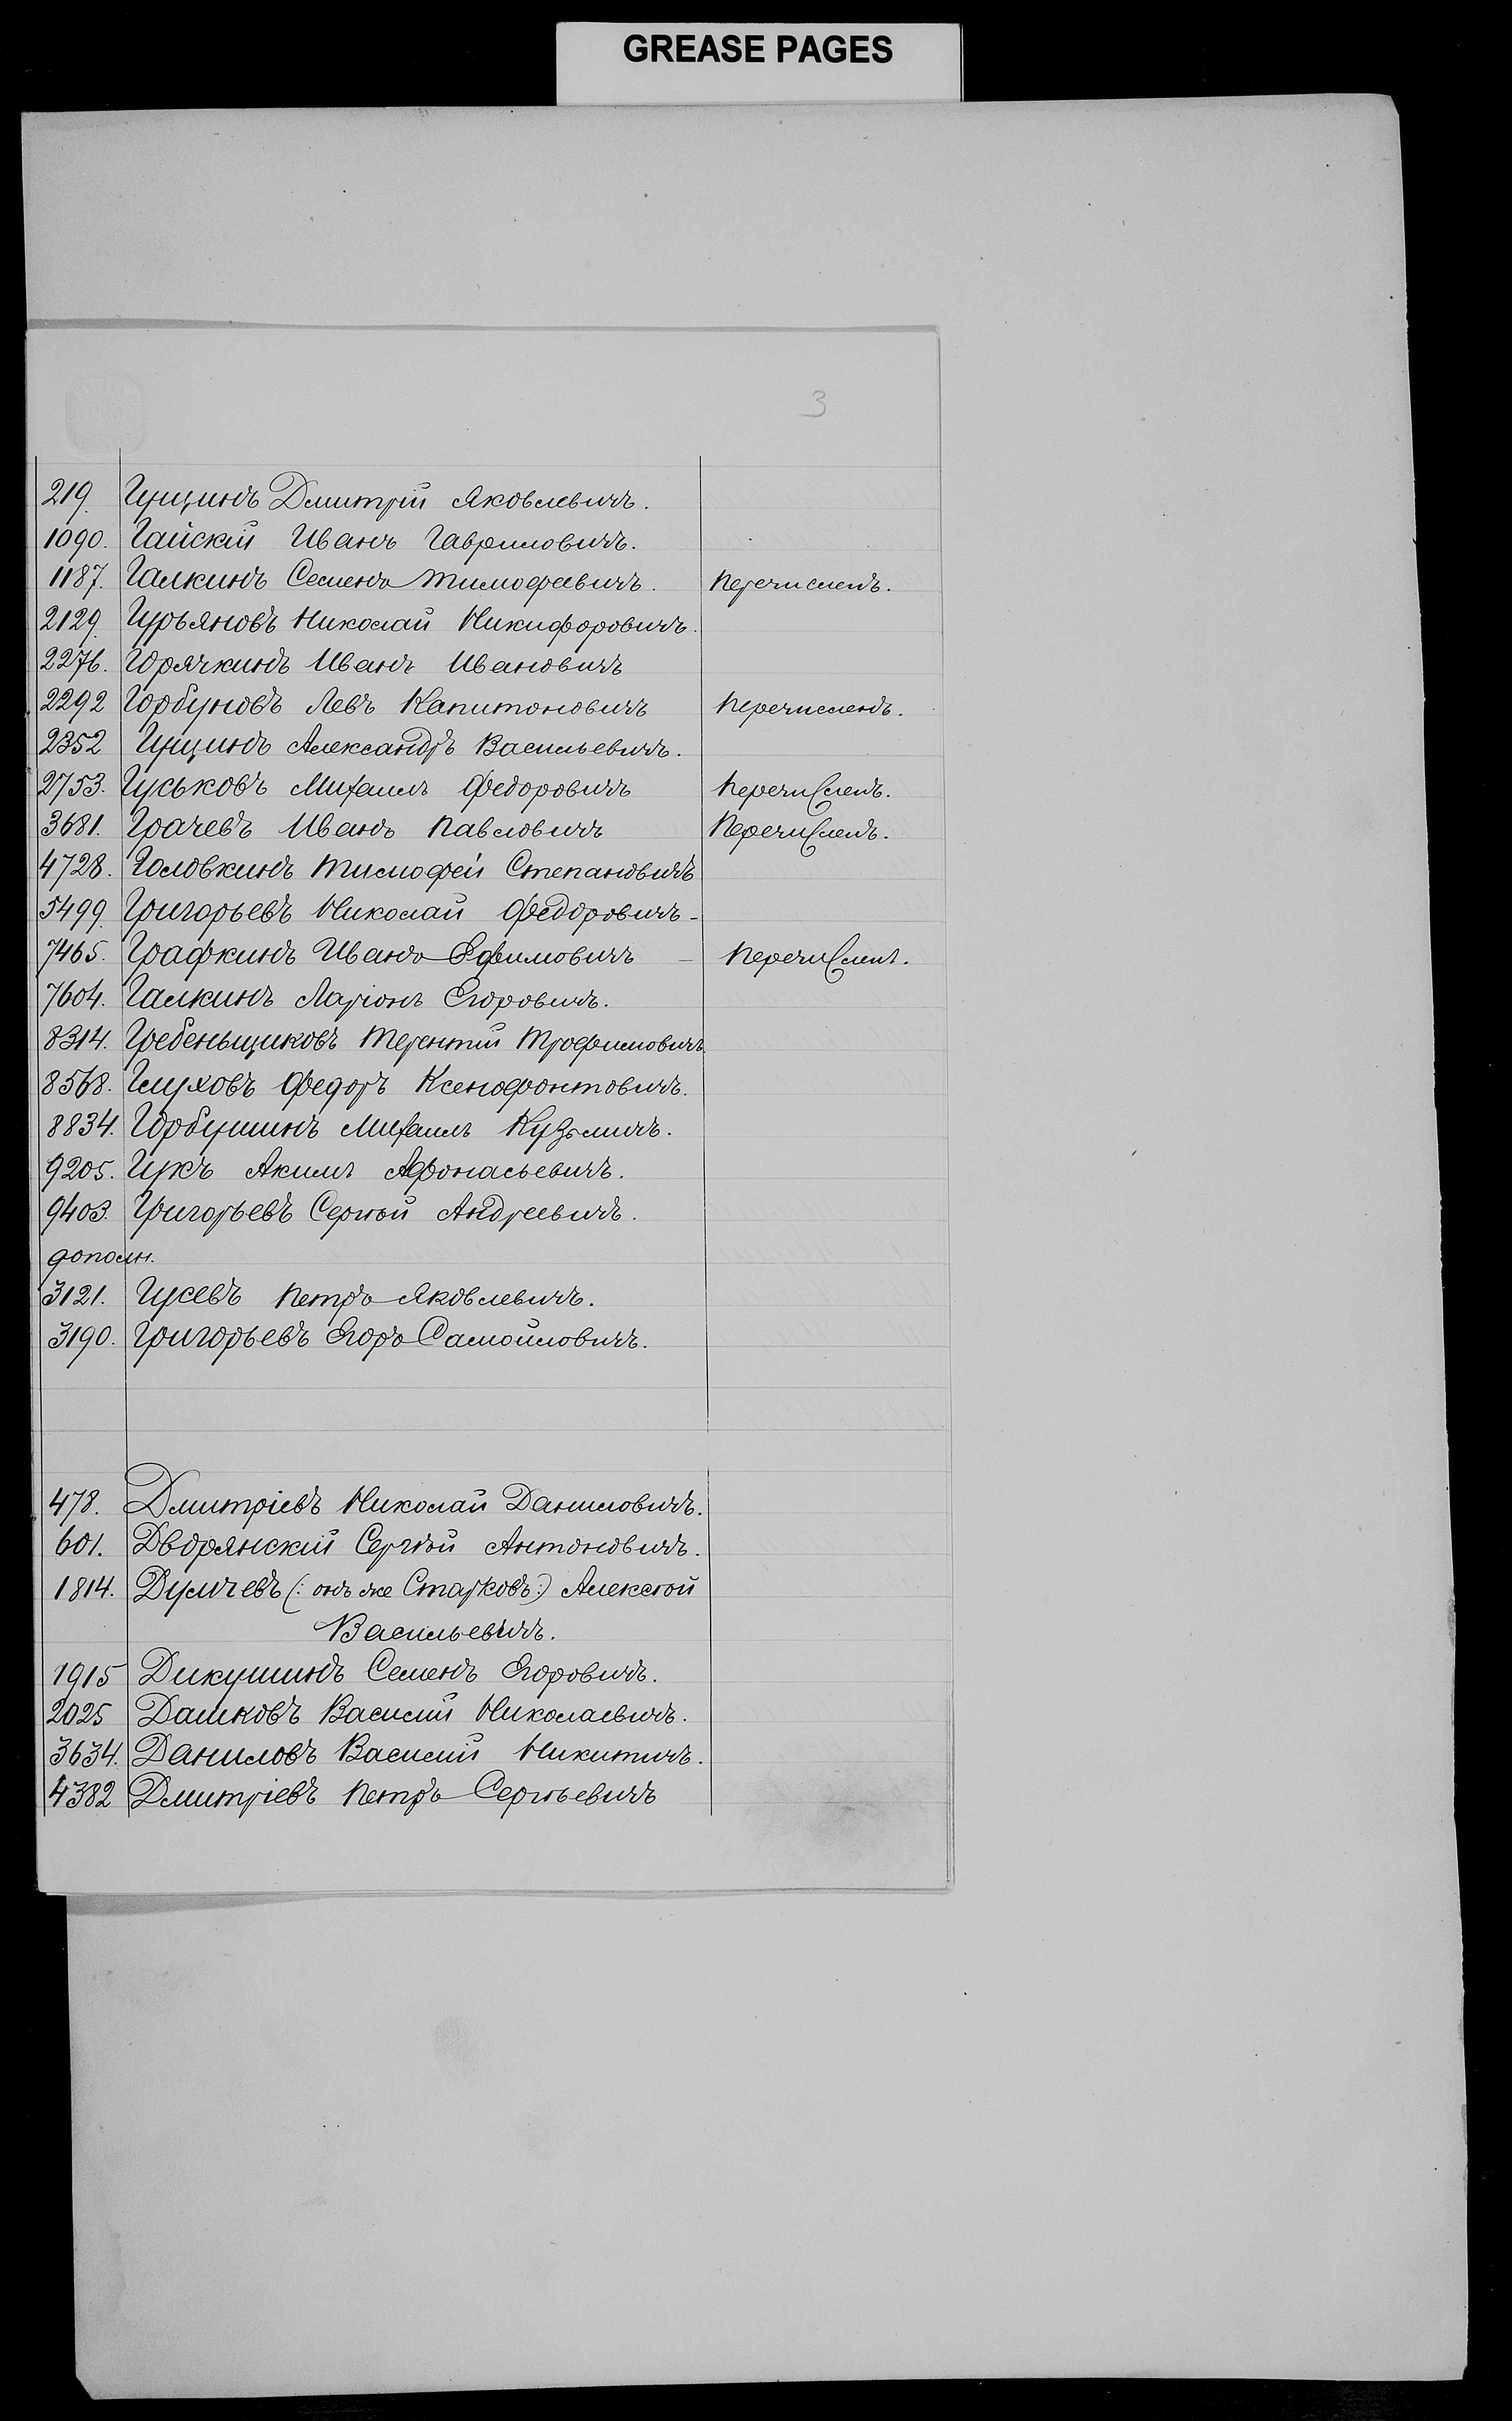 GREASE PAGES
3
219. Гущинъ Дмитрій Яковлевичъ.
1090. Гайскій Иванъ Гавриловичъ.
1187. Галкинъ Семенъ Тимофеевичъ. Перечисленъ.
2129. Гурьяновъ Николай Никифоровичъ.
2276. Горячкинъ Иванъ Ивановичъ
2292 Горбуновъ Левъ Капитоновичъ Перечисленъ.
2352 Гущинъ Александръ Васильевичъ.
2753. Гуськовъ Михаилъ Федоровичъ Перечисленъ.
3681. Грачевъ Иванъ Павловичъ Перечисленъ.
4728. Головкинъ Тимофей Степановичъ
5499. Григорьевъ Николай Федоровичъ-
7465. Графкинъ Иванъ Ефимовичъ - Перечисленъ.
7604. Галкинъ Ларіонъ Егоровичъ.
8314. Гребеньщиковъ Терентій Трофимовичъ
8568. Глуховъ Федоръ Ксенофонтовичъ.
8834. Горбушинъ Михаилъ Кузьмичъ.
9205. Гукъ Акимъ Афонасьевичъ.
9403. Григорьевъ Сергѣй Андреевичъ.
дополн.
3121. Гусевъ Петръ Яковлевичъ.
3190. Григорьевъ Егоръ Самойловичъ.
478. Дмитріевъ Николай Даниловичъ.
601. Дворянскій Сергѣй Антоновичъ.
1814. Думчевъ (: онъ же Старковъ:) Алексѣй
Васильевичъ.
1915 Дикушинъ Семенъ Егоровичъ.
2025 Дашковъ Василій Николаевичъ.
3634. Даниловъ Василій Никитичъ.
4382 Дмитріевъ Петръ Сергѣевичъ